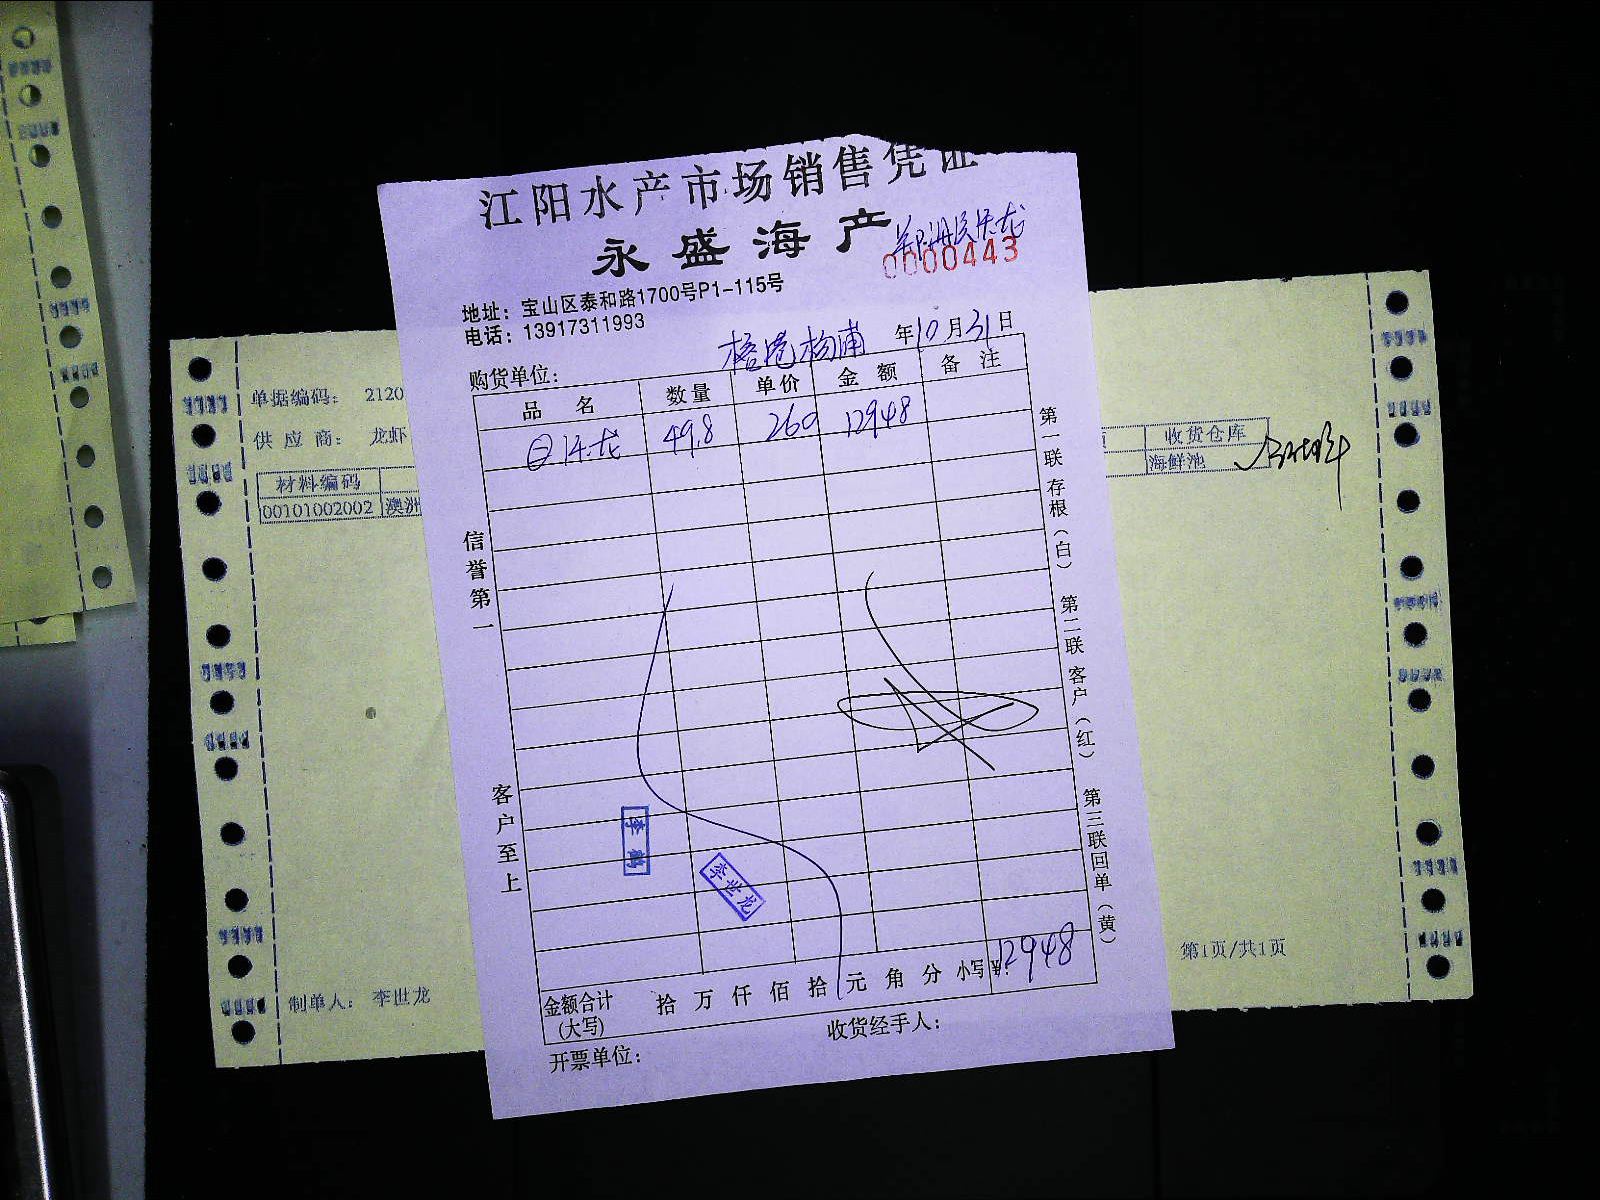 江阳水产市场销售凭证
永盛海产
0000443
地址：宝山区泰和路1700号P1-115号
电话：13917311993
年10月31日
购货单位：
品 名 数量 单价 金 额 备 注
49.8 260 12948
信誉第一
客户至上
第一联 存根（白） 第二联 客户（红） 第三联回单（黄）
李鹤
李世龙
金额合计(大写) 拾 万 仟 佰 拾 元 角 分 小写￥：12948
开票单位： 收货经手人：
单据编码： 2120
供 应 商： 龙虾
材料编码
00101002002 澳洲
收货仓库
海鲜池
制单人： 李世龙
第1页/共1页